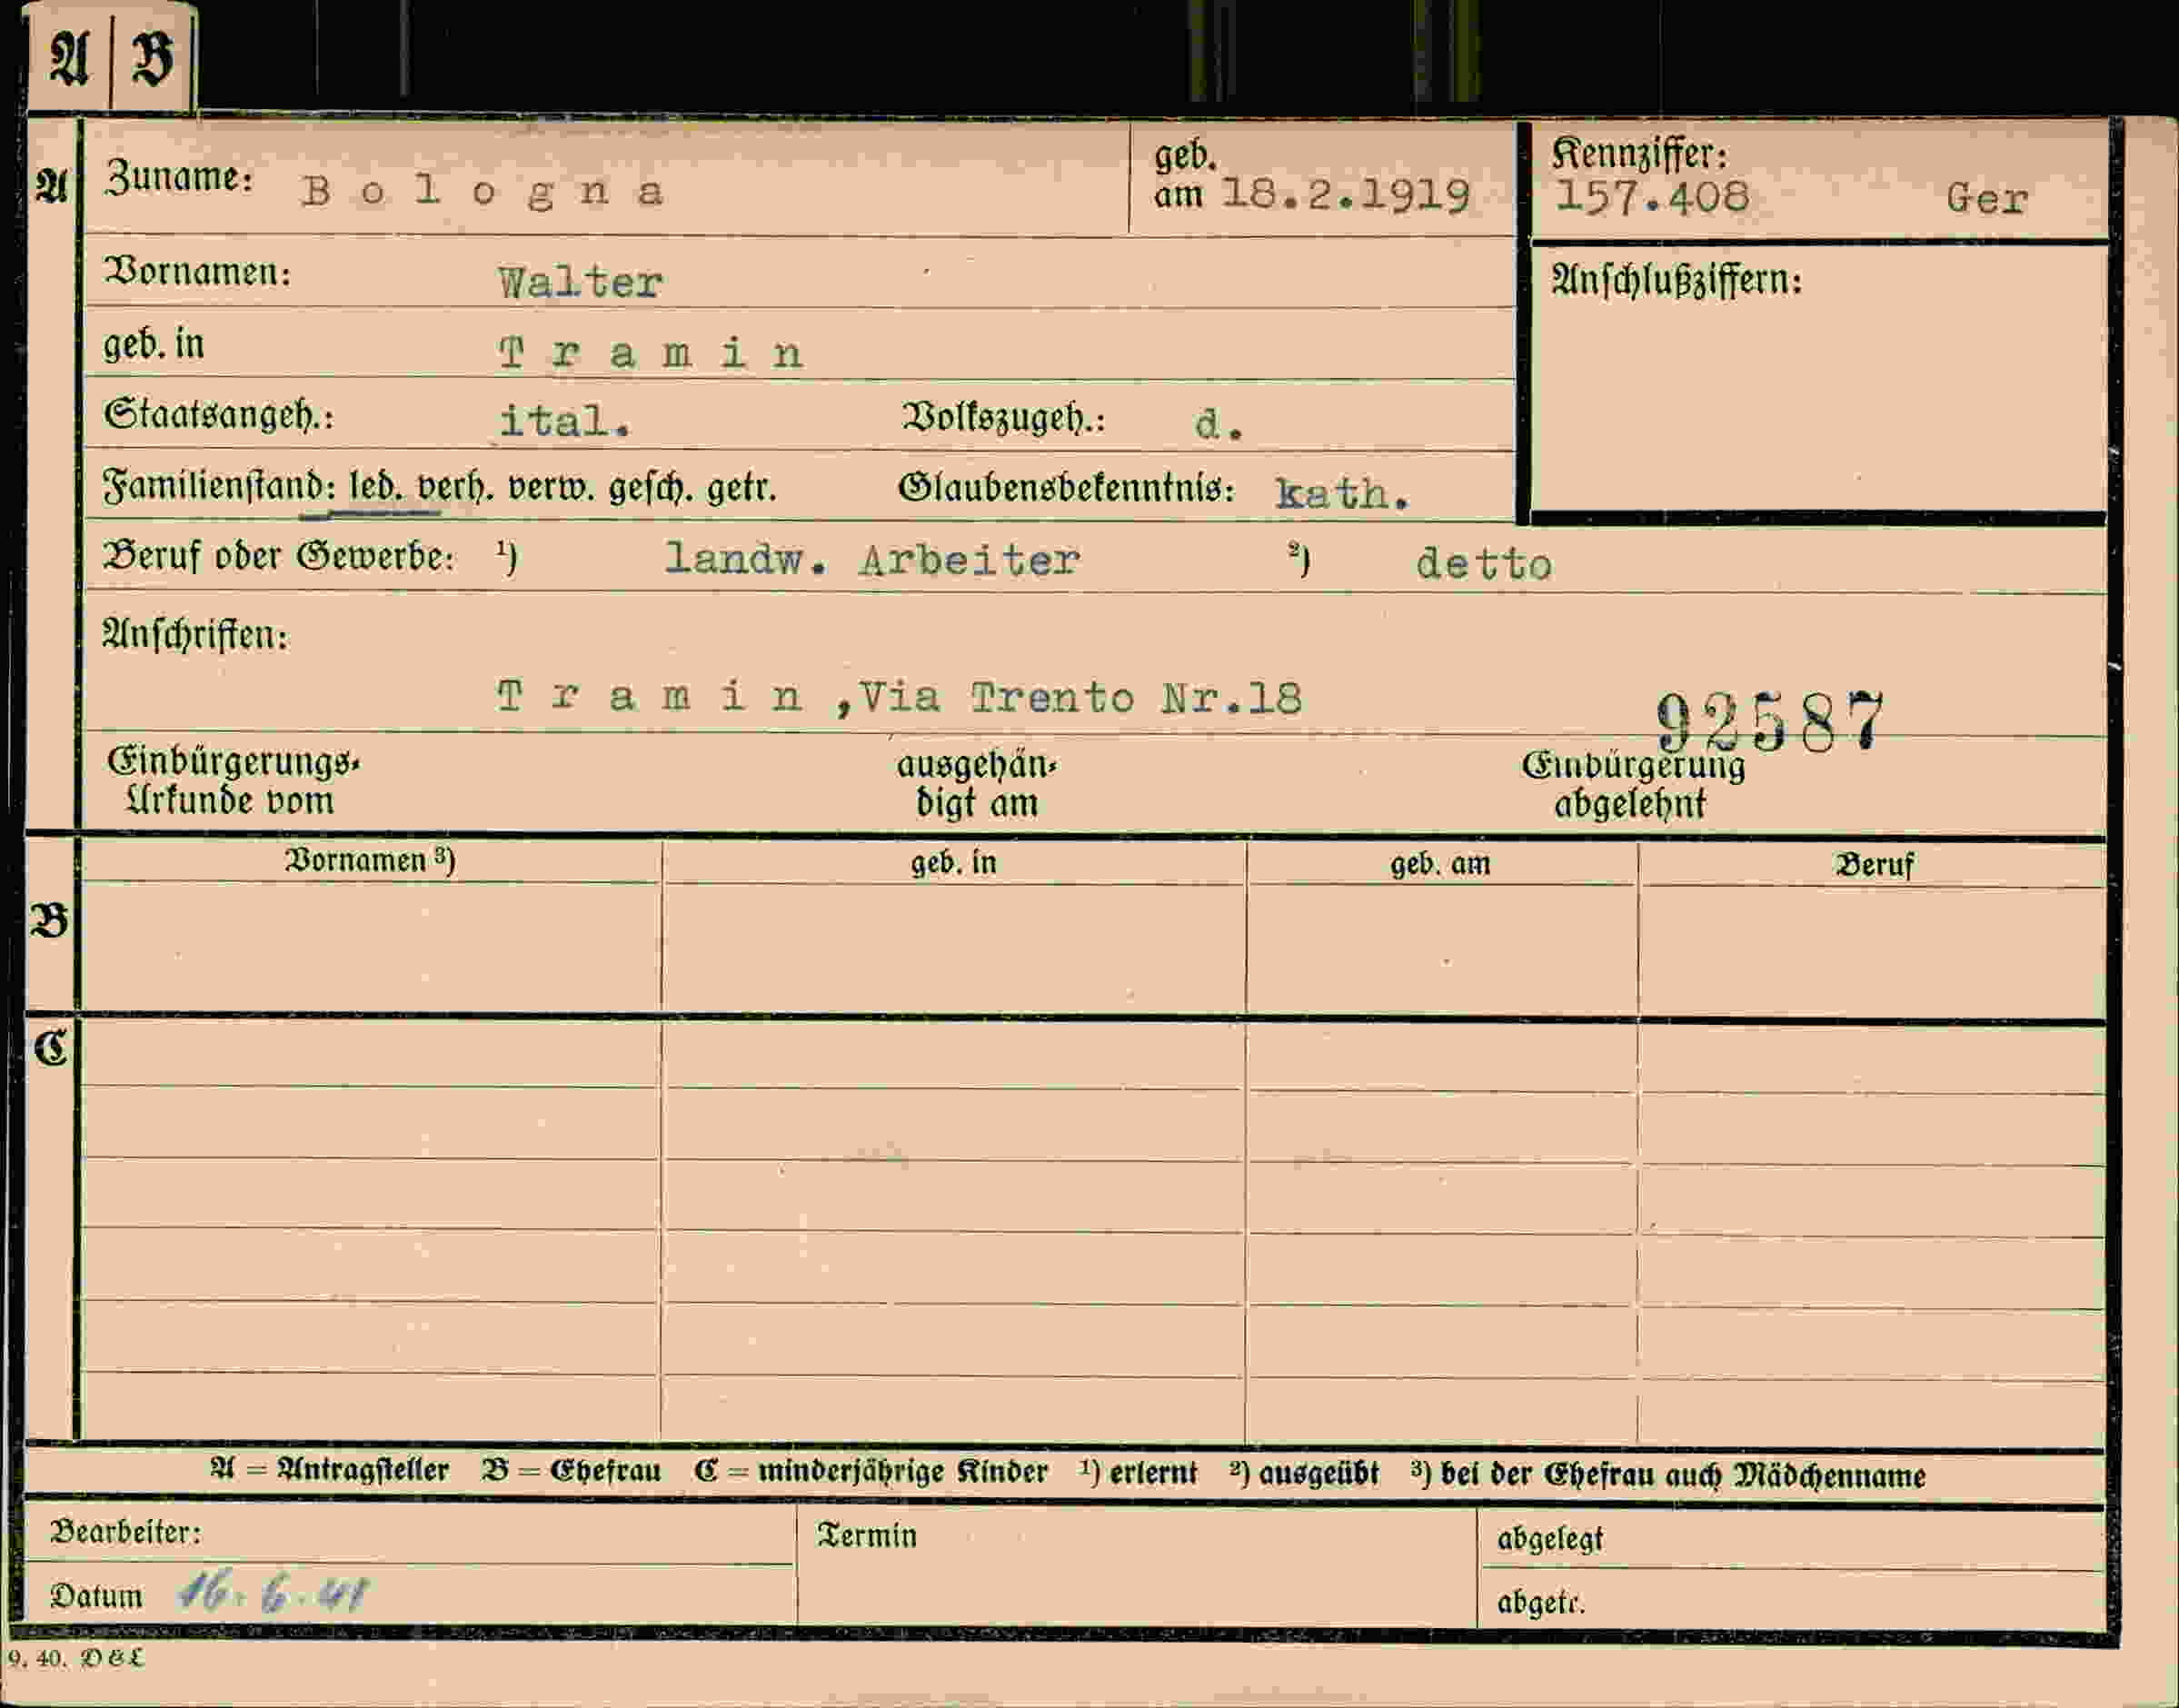 A B
A Zuname: Bologna geb. am 18.2.1919 Kennziffer: 157.408 Ger
Vornamen: Walter Anschlußziffern:
geb. in Tramin
Staatsangeh.: ital. Volkszugeh.: d.
Familienstand: led. verh. verw. gesch. getr. Glaubensbekenntnis: kath.
Beruf oder Gewerbe: ¹) landw. Arbeiter ²) detto
Anschriften:
Tramin ,Via Trento Nr.18 92587
Einbürgerungs- ausgehän- Einbürgerung
Urkunde vom digt am abgelehnt
Vornamen ³) geb. in geb. am Beruf
B
C
A = Antragsteller B = Ehefrau C = minderjährige Kinder ¹) erlernt ²) ausgeübt ³) bei der Ehefrau auch Mädchenname
Bearbeiter: Termin abgelegt
Datum 16.6.41 abgetr.
9. 40. D & L